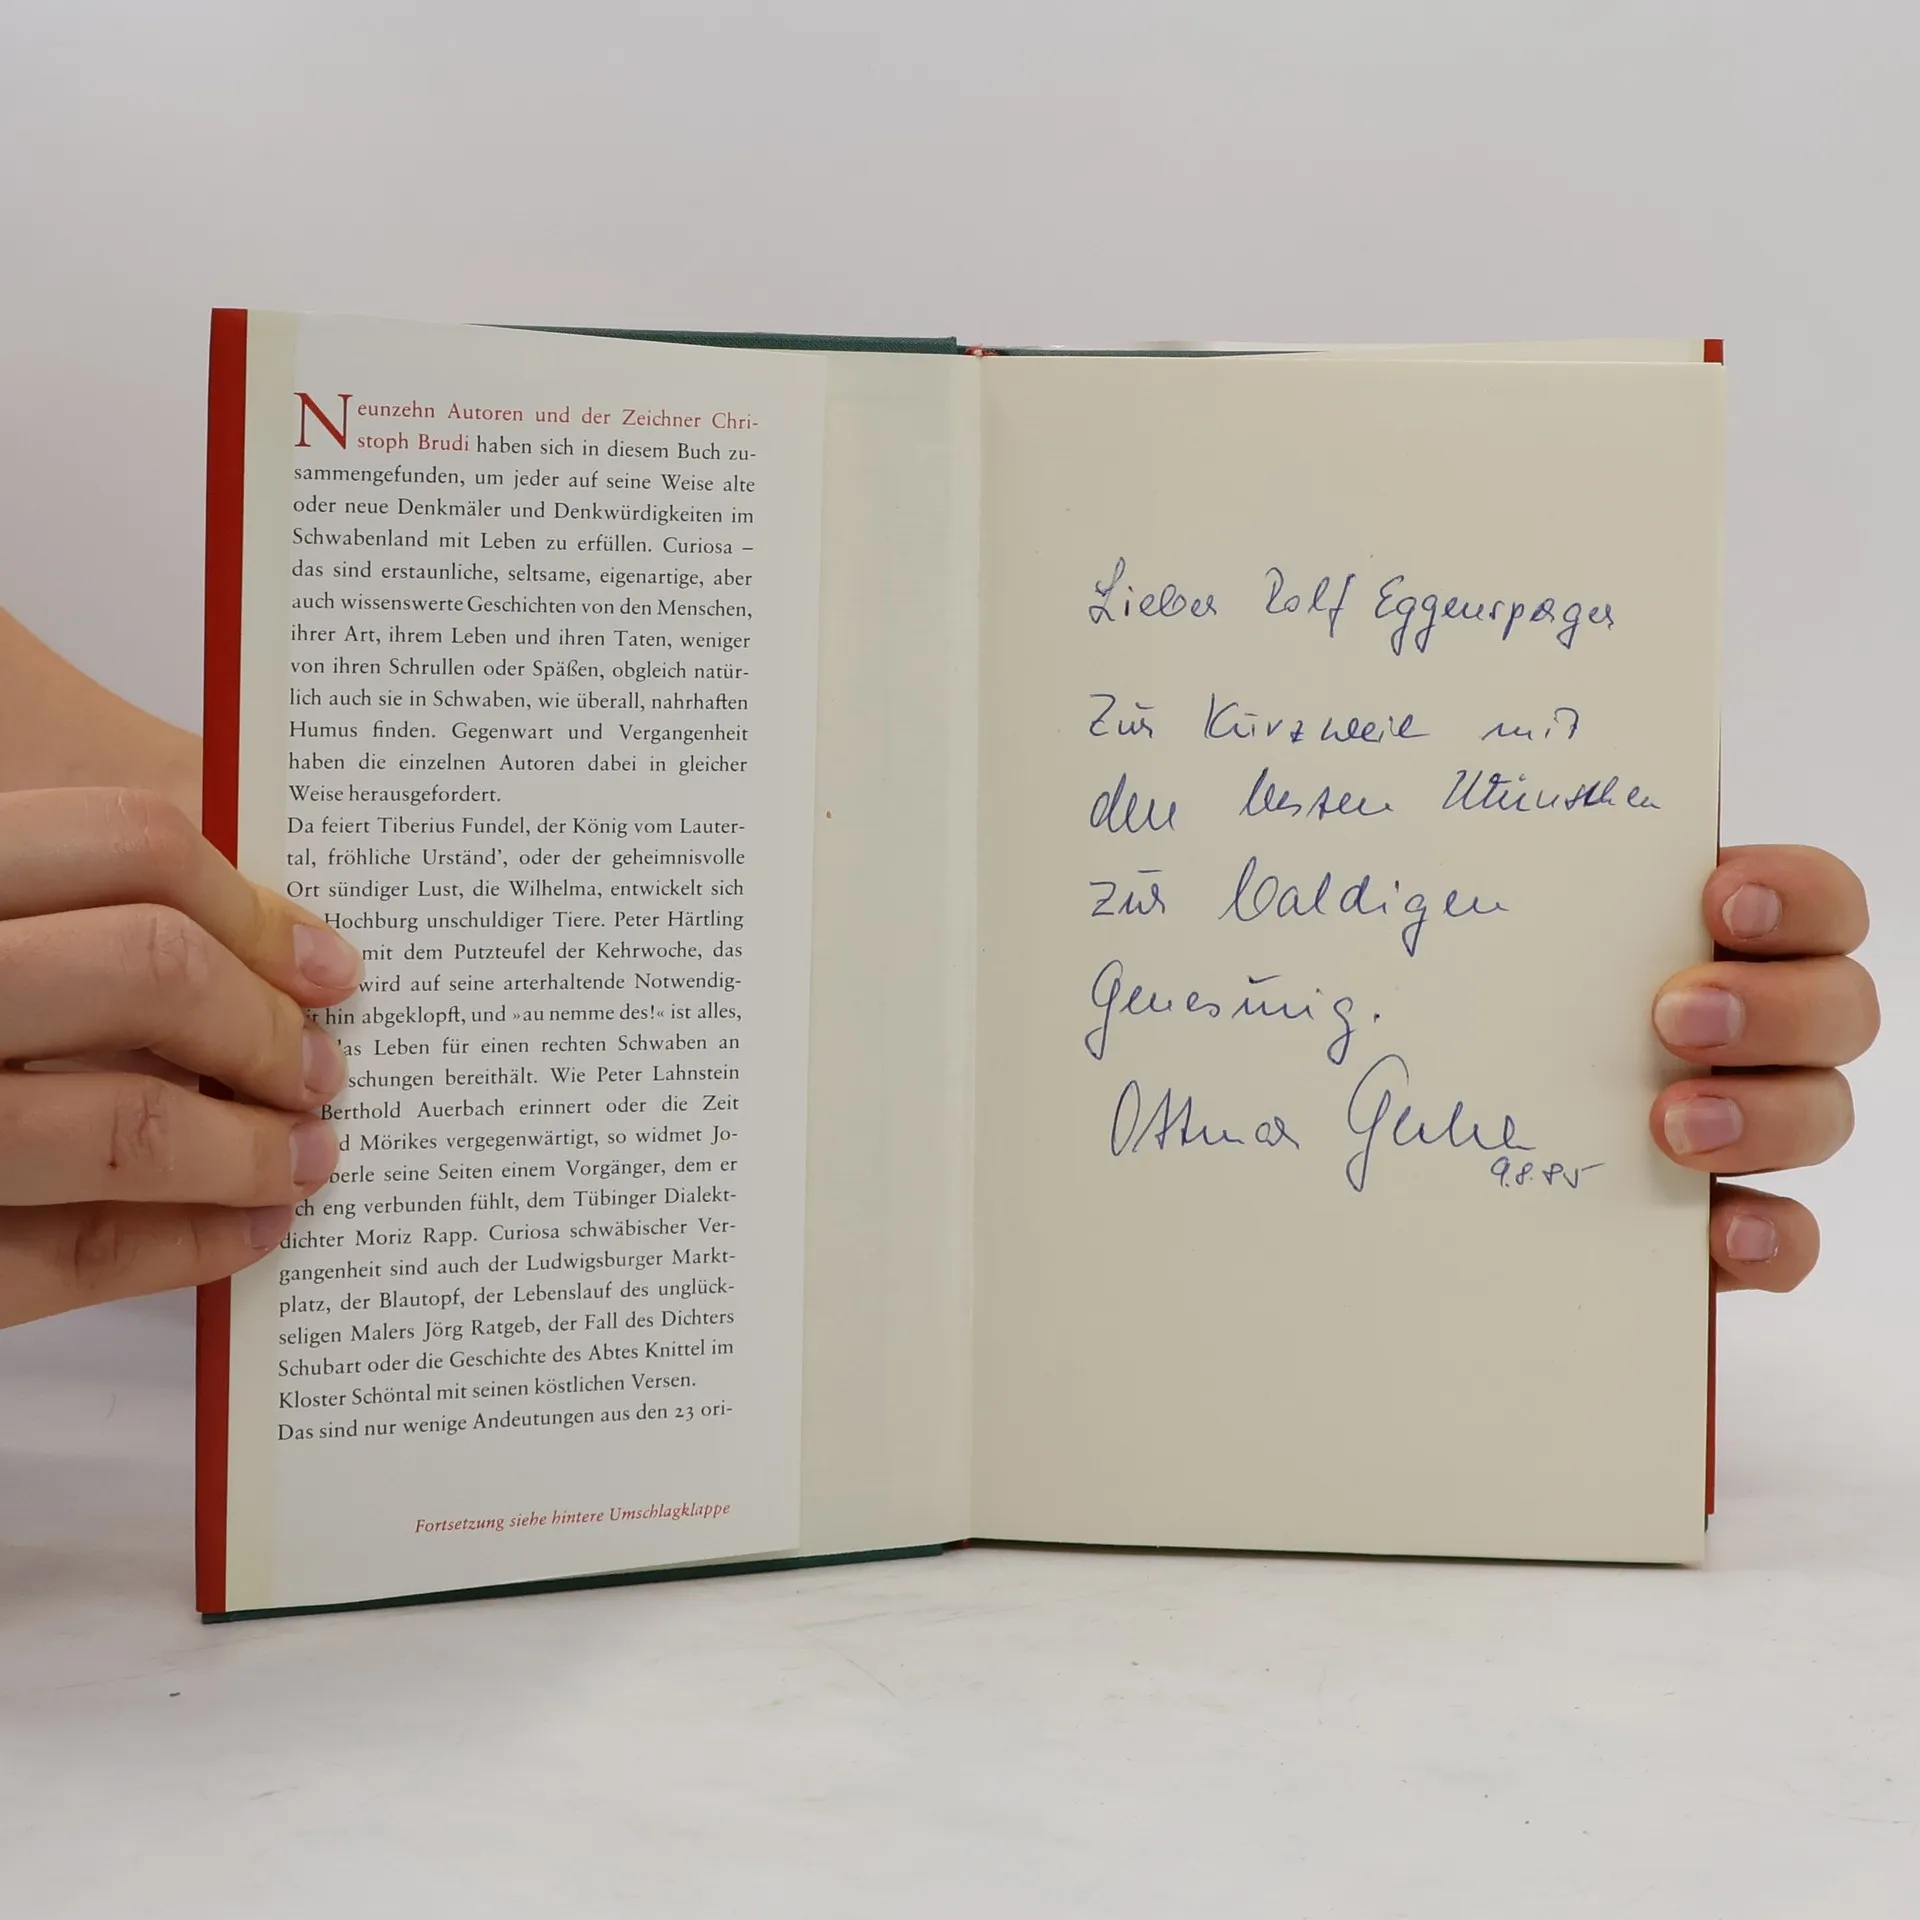 Neunzehn Autoren und der Zeichner Chri-
stoph Brudi haben sich in diesem Buch zu-
sammengefunden, um jeder auf seine Weise alte
oder neue Denkmäler und Denkwürdigkeiten im
Schwabenland mit Leben zu erfüllen. Curiosa –
das sind erstaunliche, seltsame, eigenartige, aber
auch wissenswerte Geschichten von den Menschen,
ihrer Art, ihrem Leben und ihren Taten, weniger
von ihren Schrullen oder Späßen, obgleich natür-
lich auch sie in Schwaben, wie überall, nahrhaften
Humus finden. Gegenwart und Vergangenheit
haben die einzelnen Autoren dabei in gleicher
Weise herausgefordert.
Da feiert Tiberius Fundel, der König vom Lauter-
tal, fröhliche Urständ’, oder der geheimnisvolle
Ort sündiger Lust, die Wilhelma, entwickelt sich
Hochburg unschuldiger Tiere. Peter Härtling
mit dem Putzteufel der Kehrwoche, das
wird auf seine arterhaltende Notwendig-
hin abgeklopft, und »au nemme des!« ist alles,
das Leben für einen rechten Schwaben an
schungen bereithält. Wie Peter Lahnstein
Berthold Auerbach erinnert oder die Zeit
d Mörikes vergegenwärtigt, so widmet Jo-
berle seine Seiten einem Vorgänger, dem er
ch eng verbunden fühlt, dem Tübinger Dialekt-
dichter Moriz Rapp. Curiosa schwäbischer Ver-
gangenheit sind auch der Ludwigsburger Markt-
platz, der Blautopf, der Lebenslauf des unglück-
seligen Malers Jörg Ratgeb, der Fall des Dichters
Schubart oder die Geschichte des Abtes Knittel im
Kloster Schöntal mit seinen köstlichen Versen.
Das sind nur wenige Andeutungen aus den 23 ori-
Fortsetzung siehe hintere Umschlagklappe
Lieber Rolf Eggensperger
Zur Kurzweil mit
den besten Wünschen
zur baldigen
Genesung.
Ottmar
9.8.85